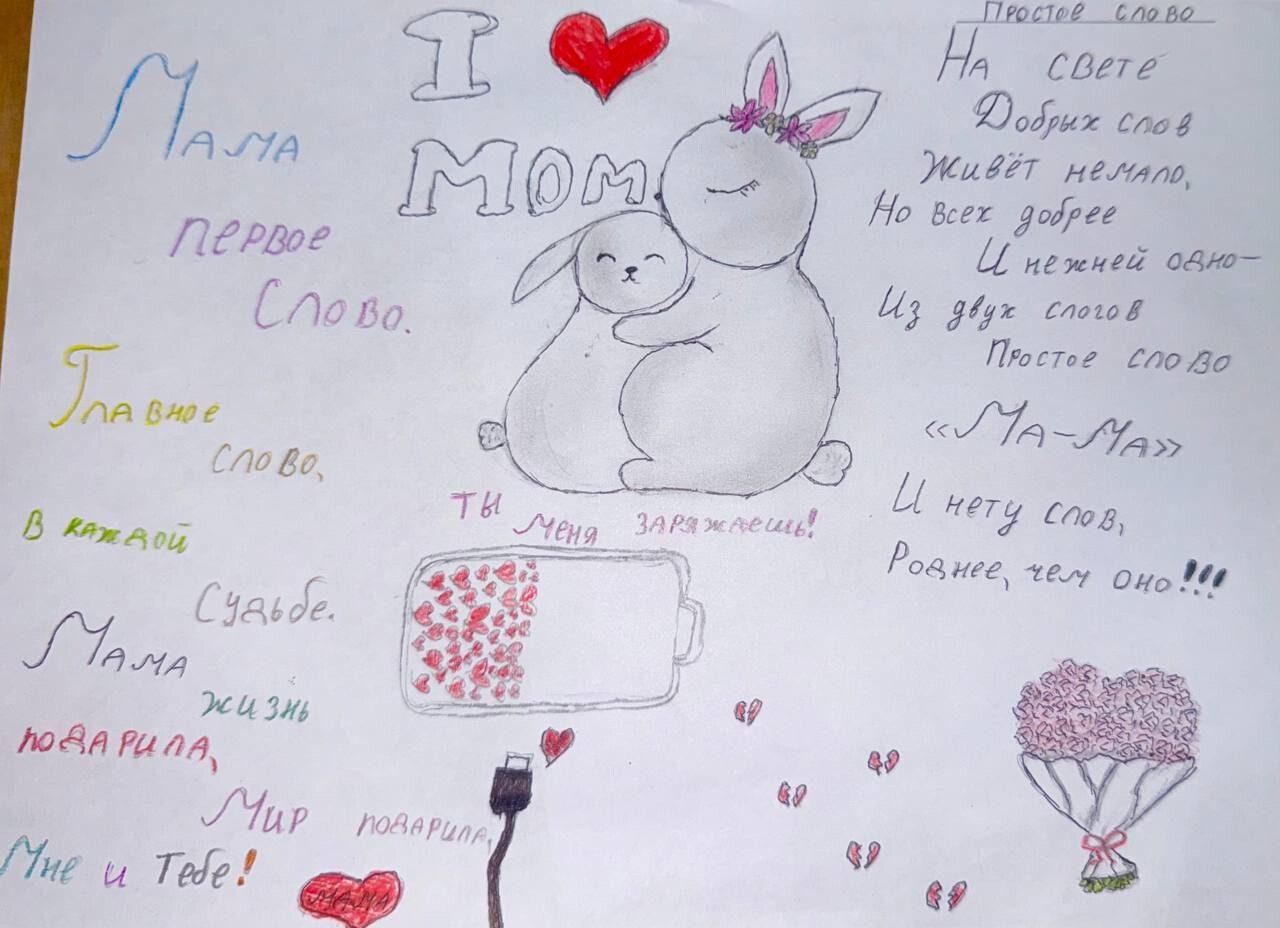 I ❤ MOM
Мама
первое
Слово.
Главное
слово,
В каждой
Судьбе.
Мама
жизнь
подарила,
Мир подарила,
Мне и Тебе!
МАМА
Ты меня заряжаешь!
Простое слово
На свете
Добрых слов
Живёт немало,
Но всех добрее
И нежней одно-
Из двух слогов
Простое слово
«Ма-Ма»
И нету слов,
Роднее, чем оно!!!